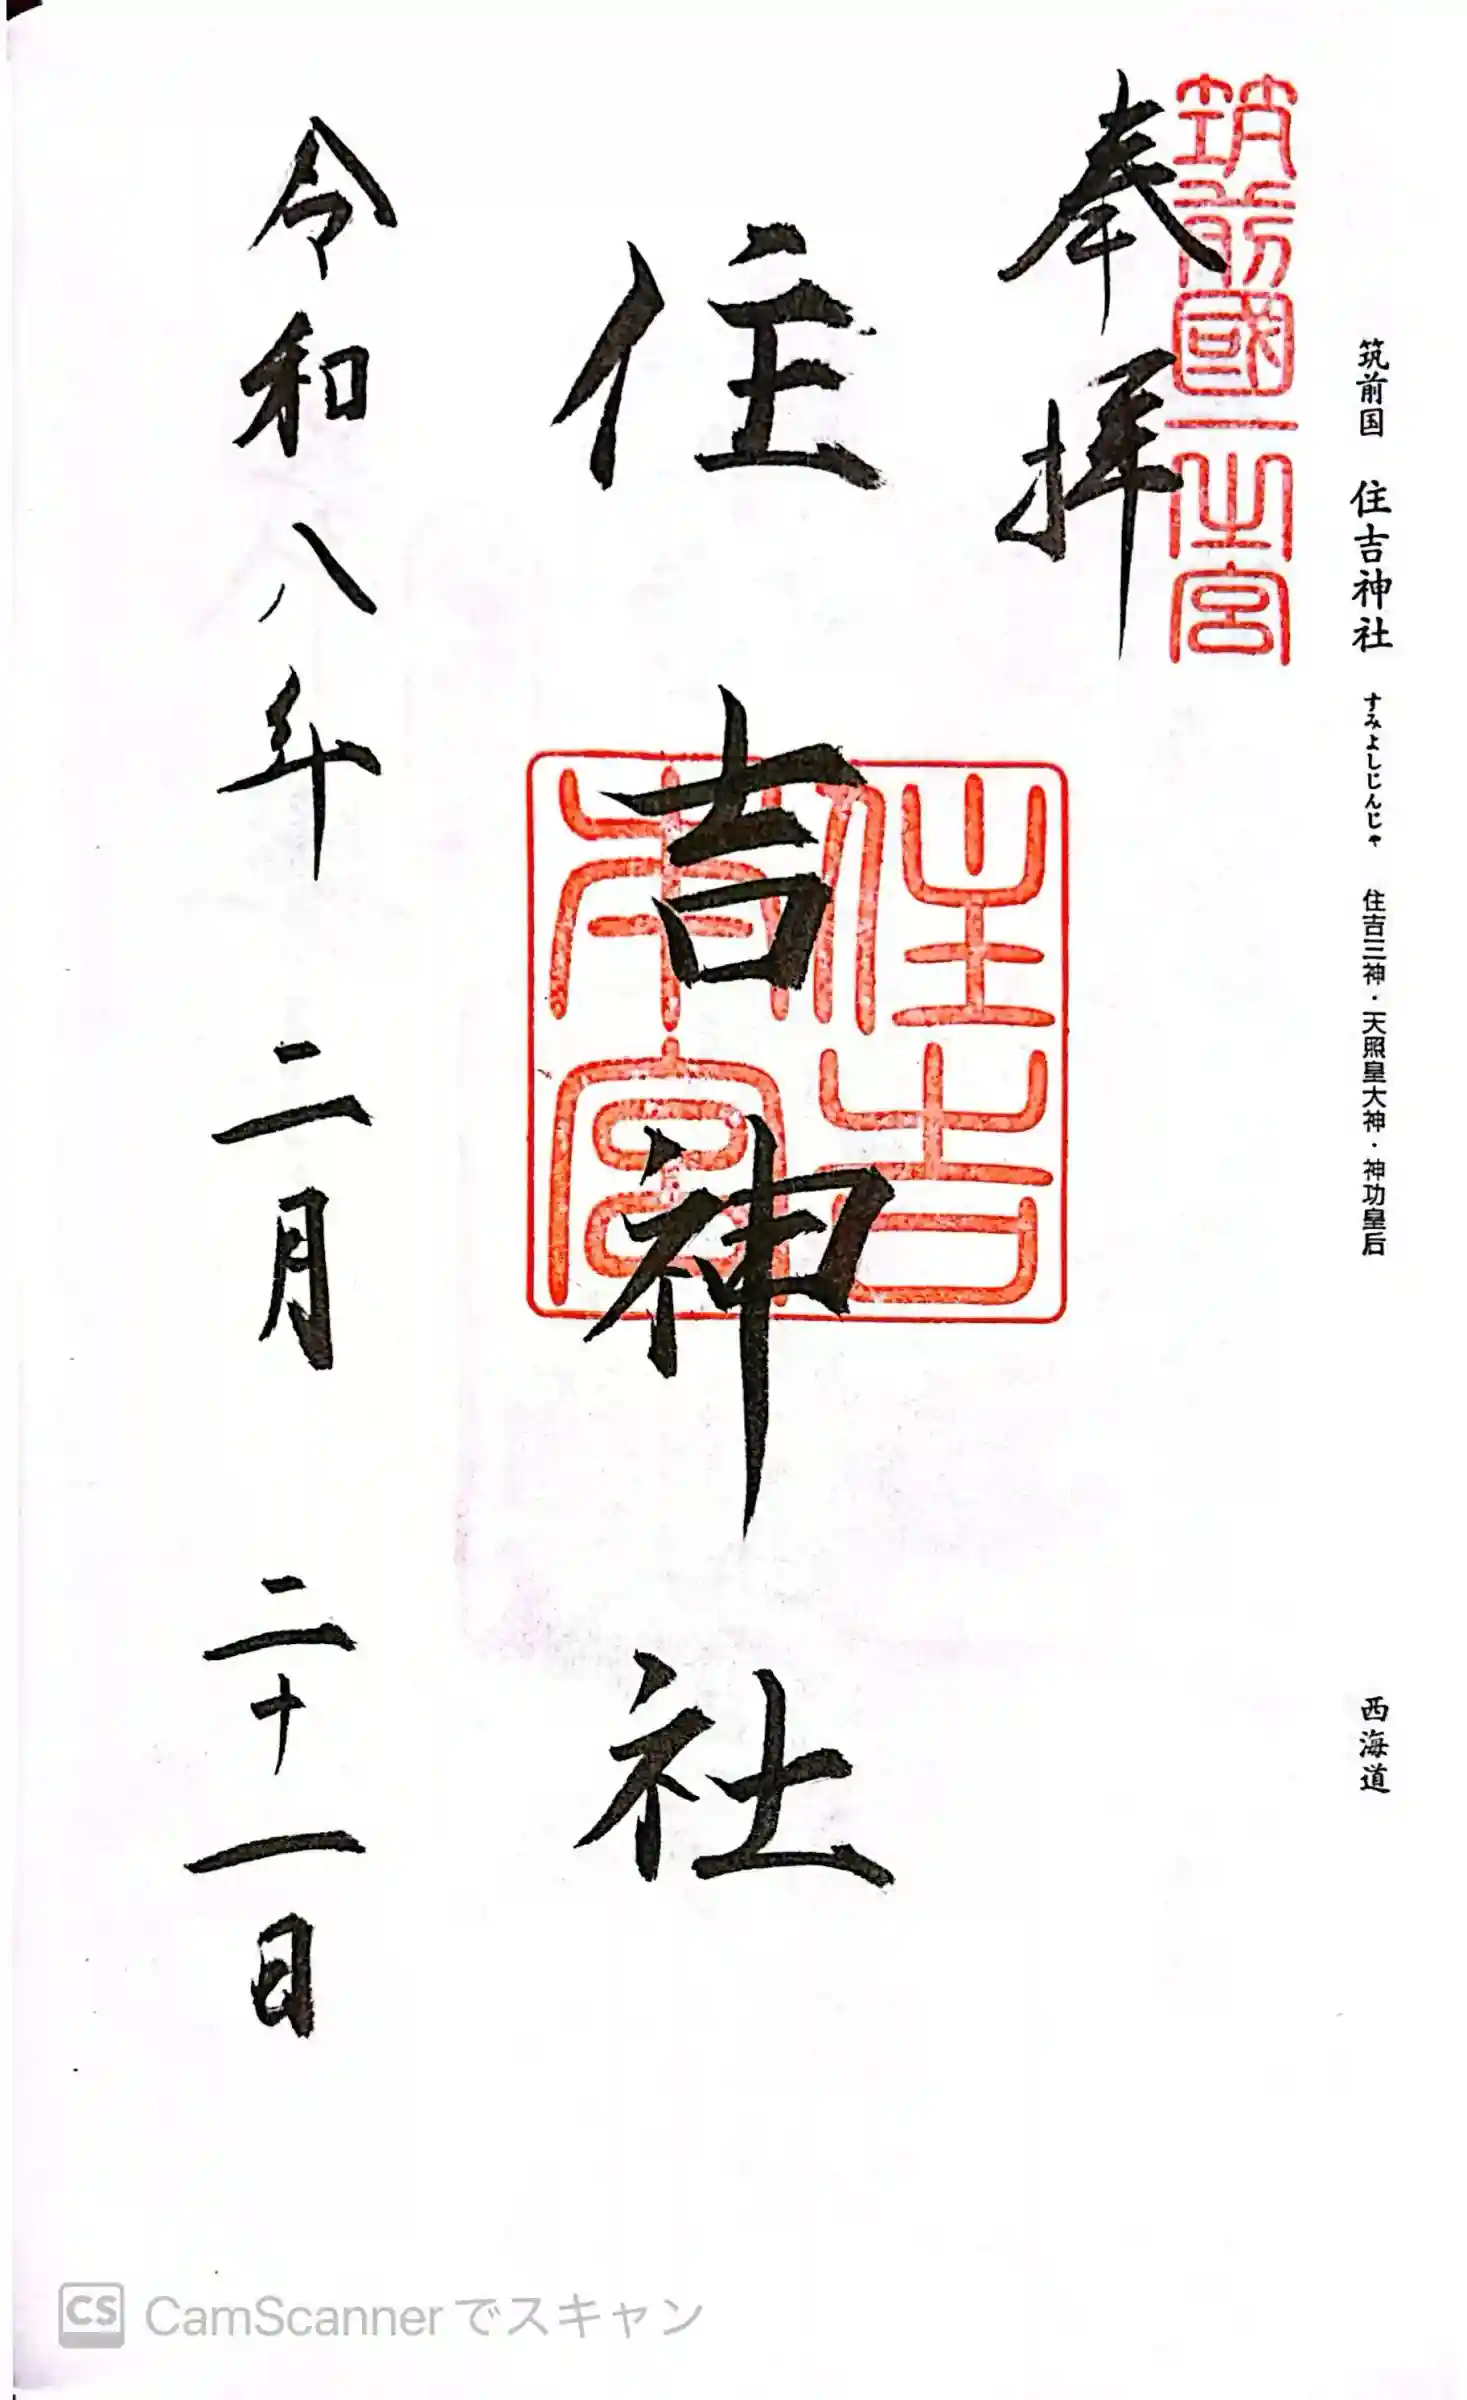 筑前国 住吉神社 すみよしじんじゃ 住吉三神・天照皇大神・神功皇后 西海道
筑前國一之宮
奉拝
住吉神社
住吉本宮
令和八年 二月 二十一日
CS CamScannerでスキャン